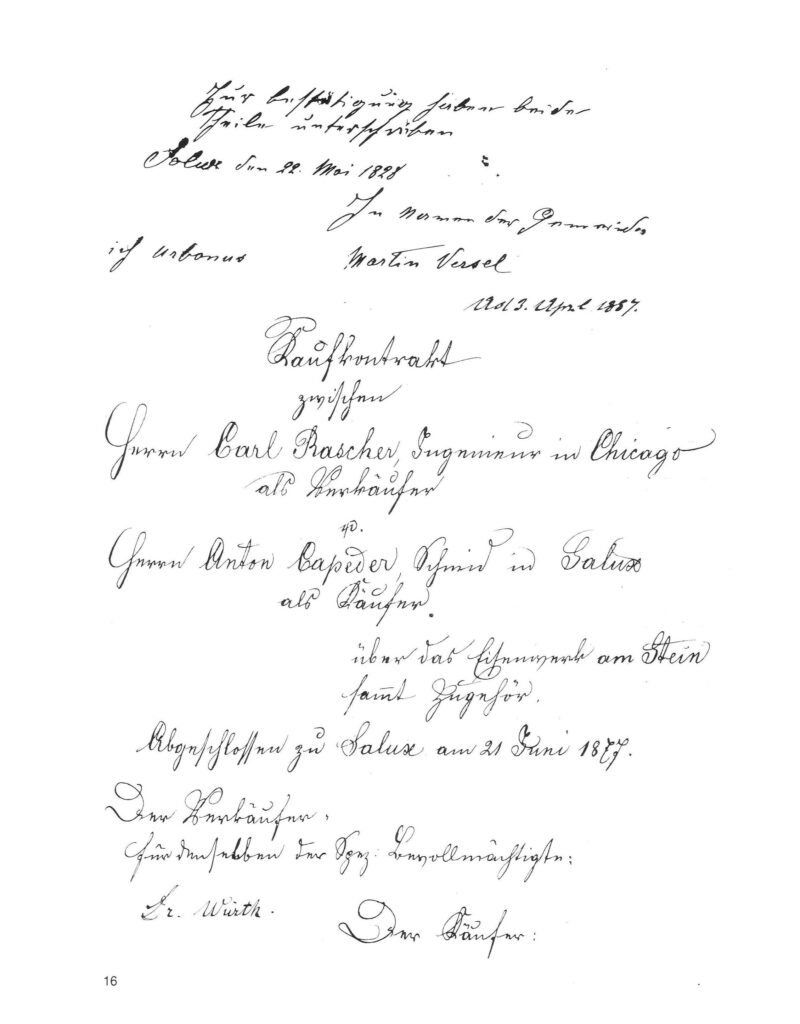 Zur bestätigung haben beide
Theile unterschrieben
Salux den 22. Mai 1828
In Namen der Gemeinde
ich urbanus Martin Versel
3. April 1857.
Kaufkontrakt
zwischen
Herrn Carl Rascher, Ingenieur in Chicago
als Verkäufer
Herrn Anton Capeder, Schmid in Salux
als Käufer.
über das Eisenwerk am Stein
sammt Zugehör.
Abgeschlossen zu Salux am 21 Juni 1877.
Der Verkäufer.
für denselben der Spez: Bevollmächtigte:
Dr. Würth.
Der Käufer:
16